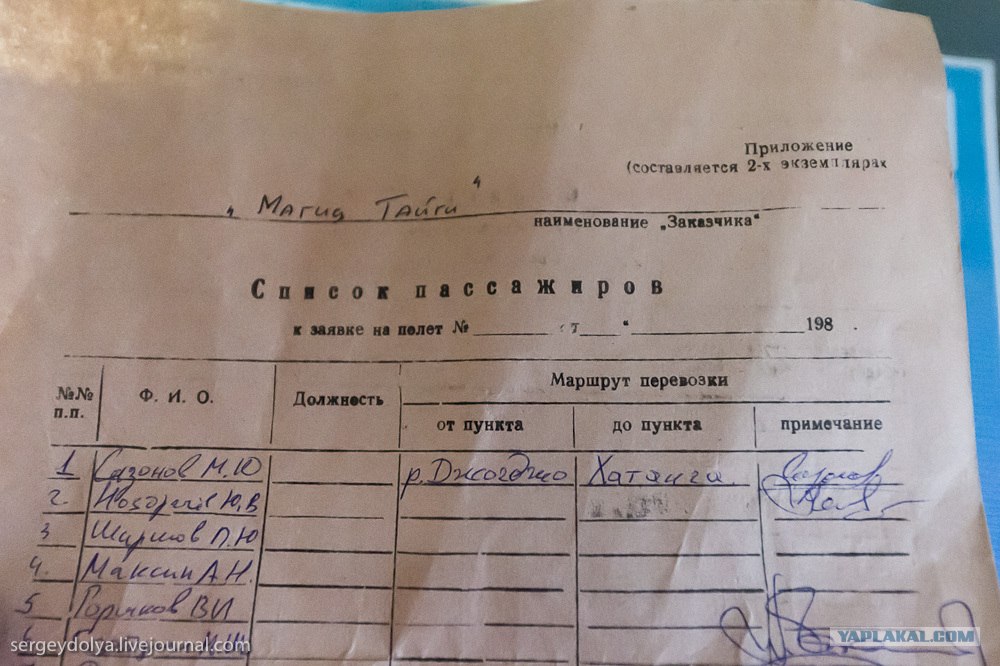 Приложение
(составляется 2-х экземплярах
„Магия Тайги“
наименование „Заказчика“
Список пассажиров
к заявке на полет № “ 198 .
№№ п.п. Ф. И. О. Должность Маршрут перевозки
от пункта до пункта примечание
1 Сазонов М.Ю р. Джогджо Хатанга
2. Ю.В
3 Шаришов П.Ю
4. Максин А.Н.
5 Горчков В И
6
sergeydolya.livejournal.com
YAPLAKAL.COM